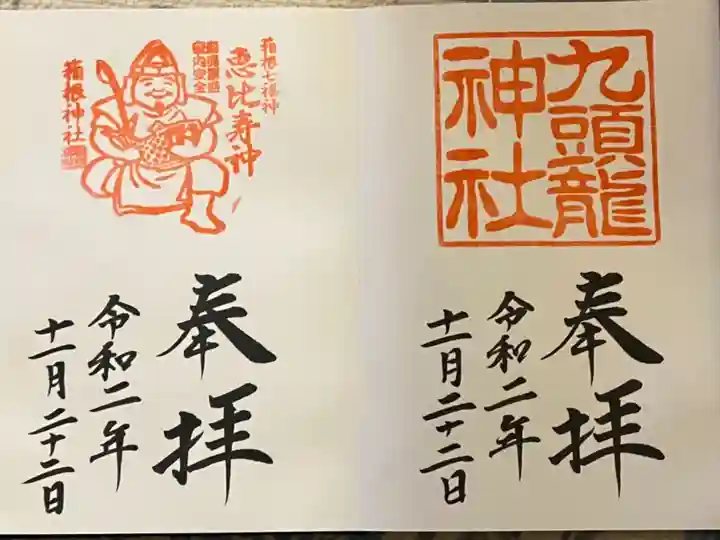 九頭龍
神社
奉拝
令和二年
十一月二十二日
箱根七福神
恵比寿神
家内安全
箱根神社
奉拝
令和二年
十一月二十二日